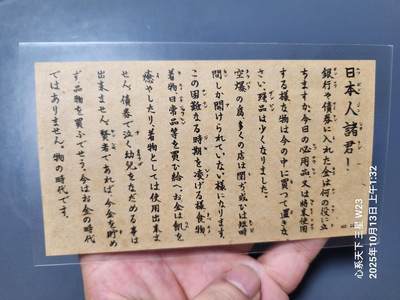 日本人諸君！
銀行や債券に入れた金は何の役に立
ちますか、今日の必用品又は将来使用
する様な物は今の中に買つて置きな
さい、残品は少くなりました。
空爆の為、多くの店は閉ぢ或ひは短時
間しか開けられていない様になります
この困難なる時期を凌げる様食物、
着物、日常品等を買ひ給へ、お金は飢を
癒やしたり、着物としては使用出来ま
せん、債券で泣く幼兒をなだめる事は
出来ません、賢者であれば、今金を貯め
ず、品物を買ふでせう、今はお金の時代
ではありません、物の時代です。
心系天下三星 W23
2025年10月13日 上午1:32